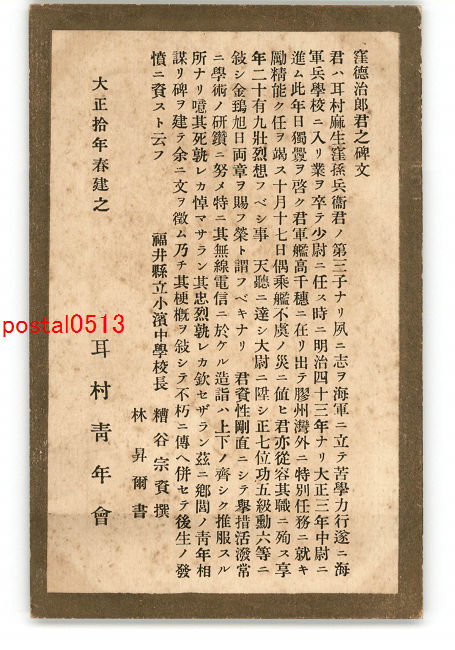 窪德治郎君之碑文
君ハ耳村麻生窪孫兵衞君ノ第三子ナリ夙ニ志ヲ海軍ニ立テ苦學力行遂ニ海
軍兵學校ニ入リ業ヲ卒テ少尉ニ任ス時ニ明治四十三年ナリ大正三年中尉ニ
進ム此年日獨釁ヲ啓ク君軍艦高千穗ニ在リ出テ膠州灣外ニ特別任務ニ就キ
勵精能ク任ヲ竭ス十月十七日偶乘艦不虞ノ災ニ値ヒ君亦從容其職ニ殉ス享
年二十有九壯烈想フベシ事　天聽ニ達シ大尉ニ陞シ正七位功五級勳六等ニ
敍シ金鵄旭日両章ヲ賜フ榮ト謂フベキナリ　君資性剛直ニシテ擧措活潑常
ニ學術ノ硏鑽ニ努メ特ニ其無線電信ニ於ケル造詣ハ上下ノ齊シク推服スル
所ナリ噫其死孰レカ悼マサラン其忠烈孰レカ欽セザラン茲ニ鄕閭ノ靑年相
謀リ碑ヲ建テ余ニ文ヲ徵ム乃チ其梗槪ヲ敍シテ不朽ニ傳ヘ併セテ後生ノ發
憤ニ資スト云フ
福井縣立小濱中學校長　糟谷宗資撰
林　昇爾書
大正拾年春建之
耳村靑年會
postal0513